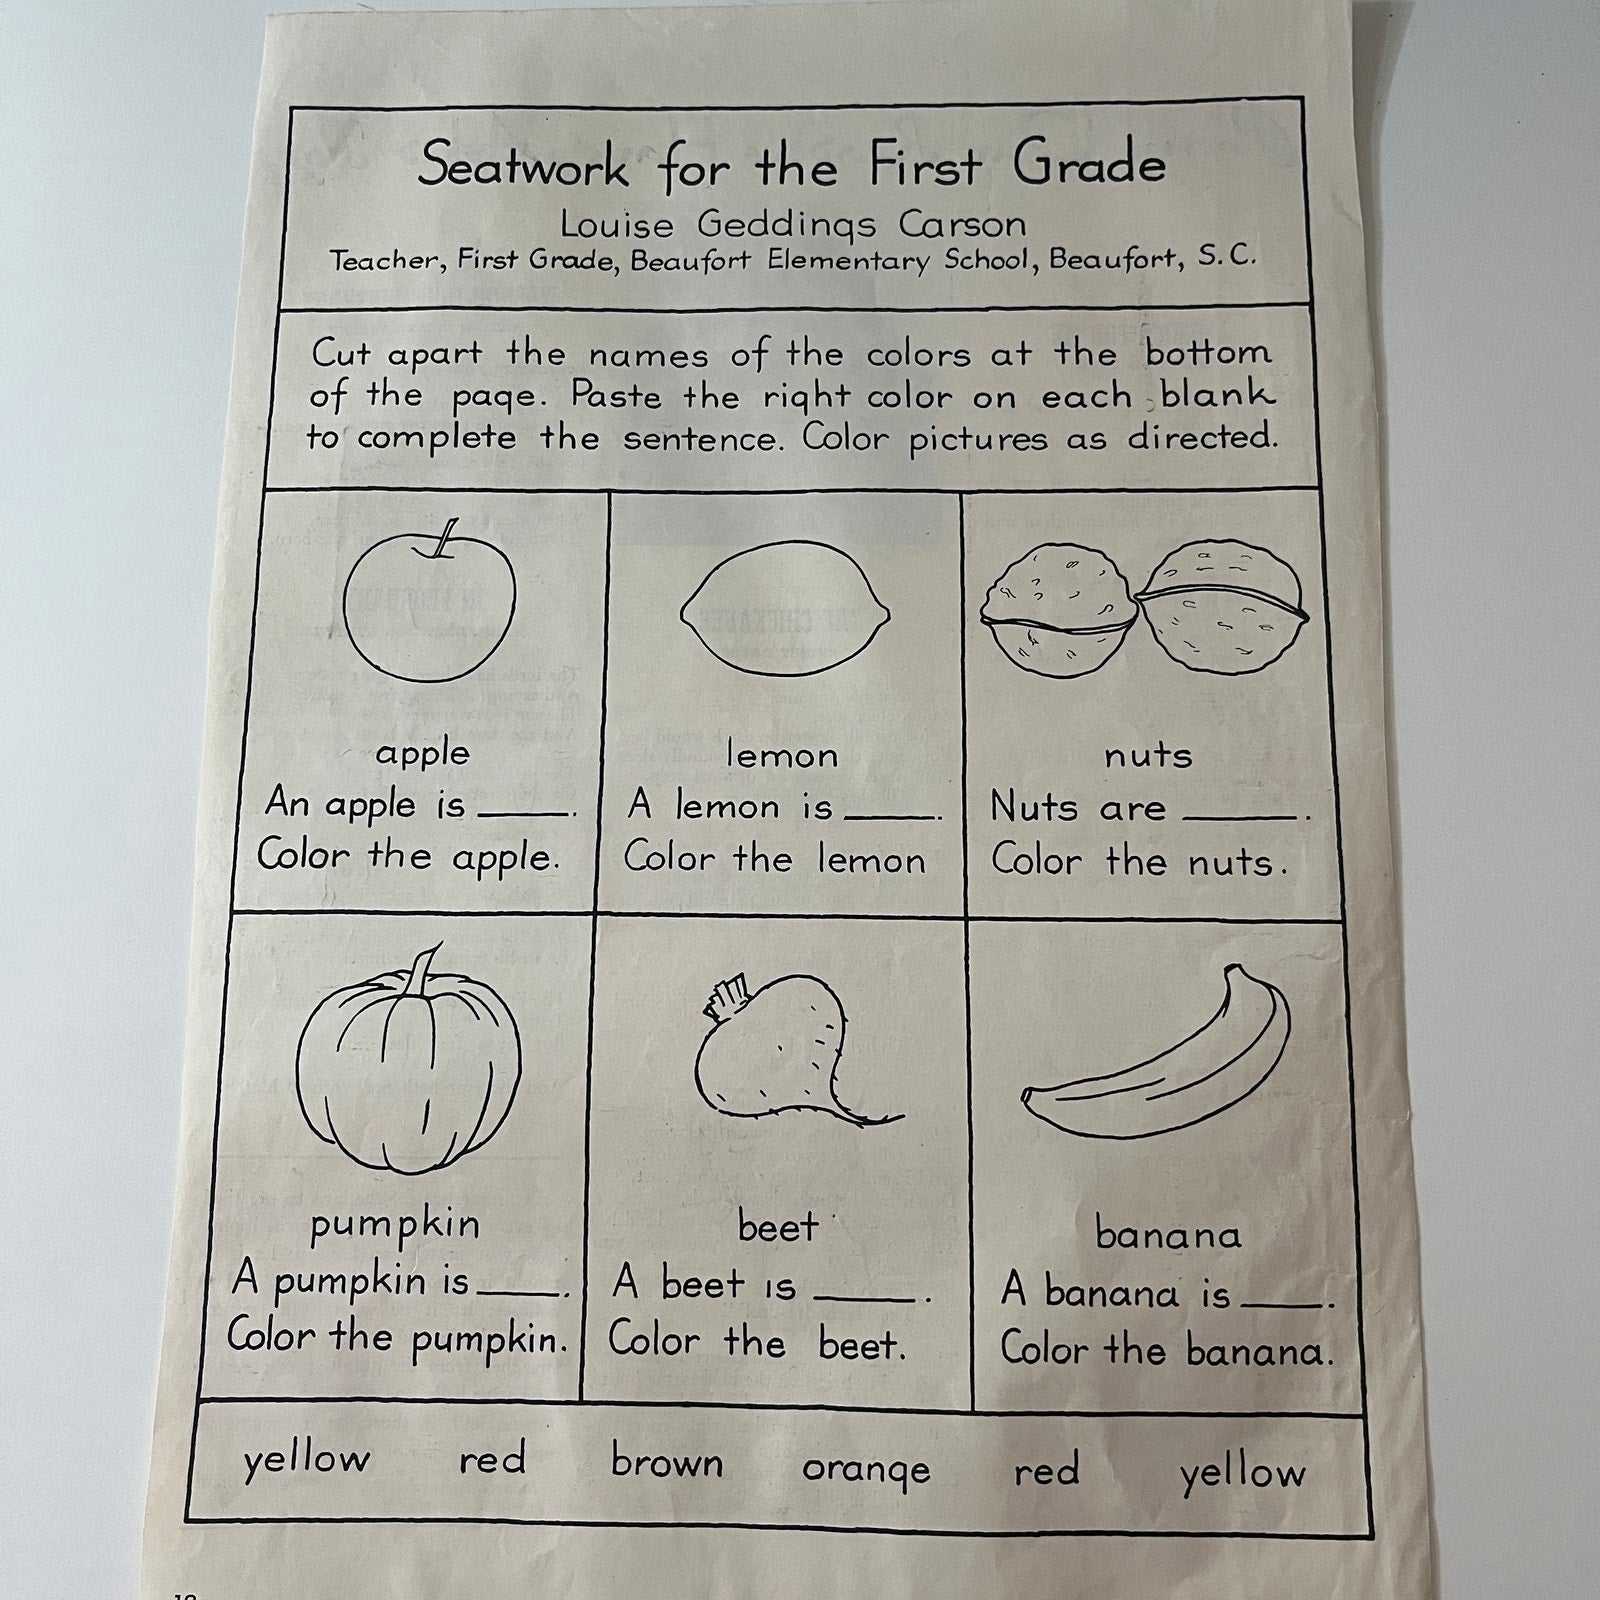 Seatwork for the First Grade
Louise Geddings Carson
Teacher, First Grade, Beaufort Elementary School, Beaufort, S.C.
Cut apart the names of the colors at the bottom
of the page. Paste the right color on each blank
to complete the sentence. Color pictures as directed.
apple
An apple is _____.
Color the apple.
lemon
A lemon is _____.
Color the lemon
nuts
Nuts are _____.
Color the nuts.
pumpkin
A pumpkin is _____.
Color the pumpkin.
beet
A beet is _____.
Color the beet.
banana
A banana is _____.
Color the banana.
yellow red brown orange red yellow